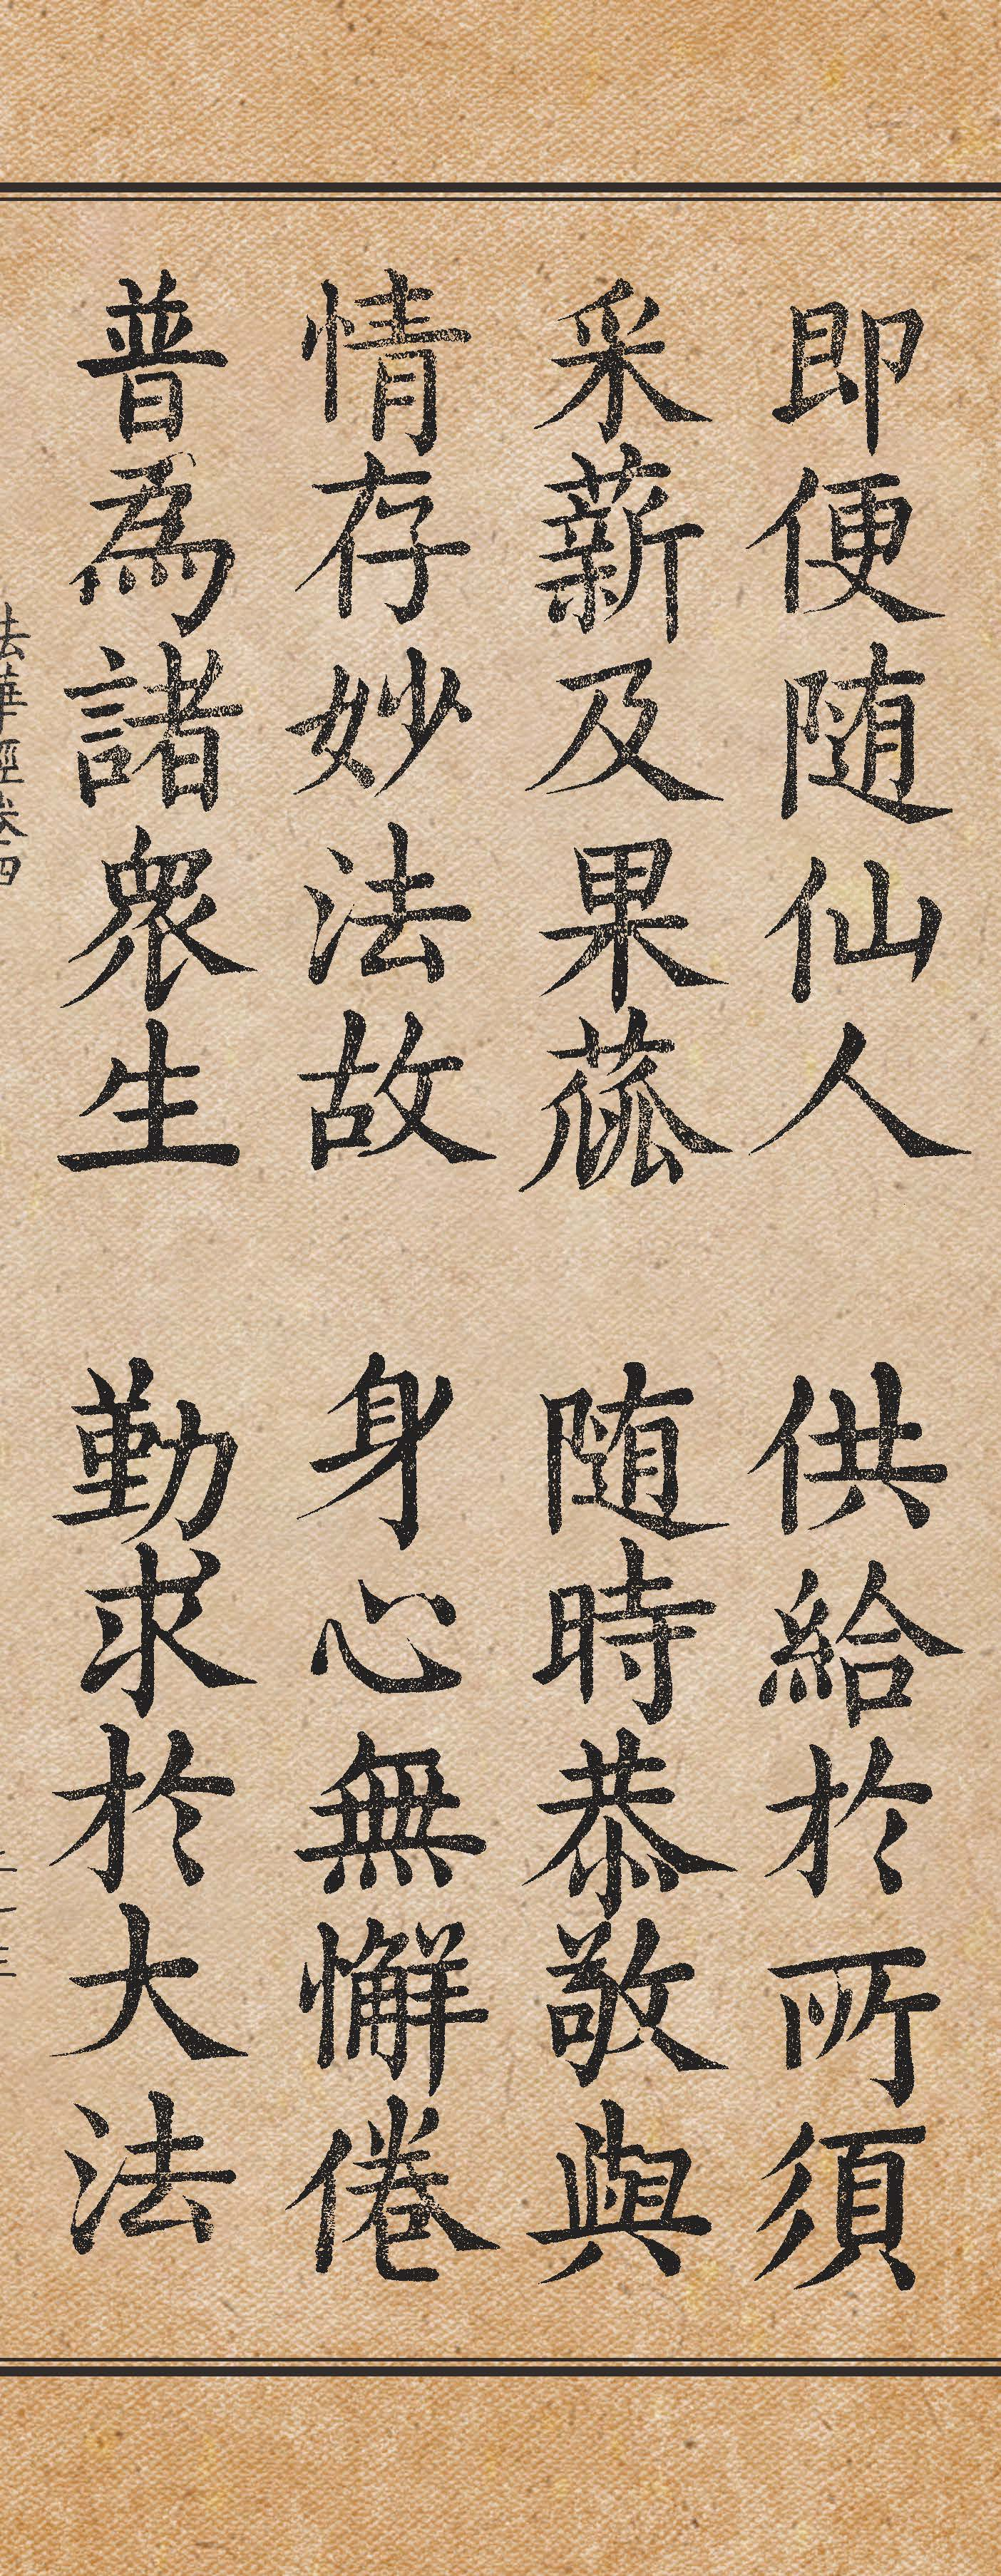 即便随仙人 供給於所須
采薪及果蓏 随時恭敬與
情存妙法故 身心無懈倦
普為諸眾生 勤求於大法
法華經卷四